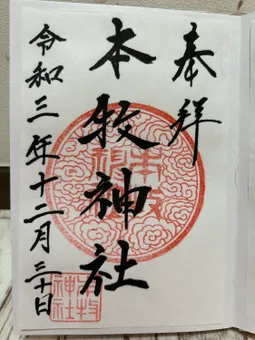 奉拝
本牧神社
令和三年十二月三十日
本牧
神社